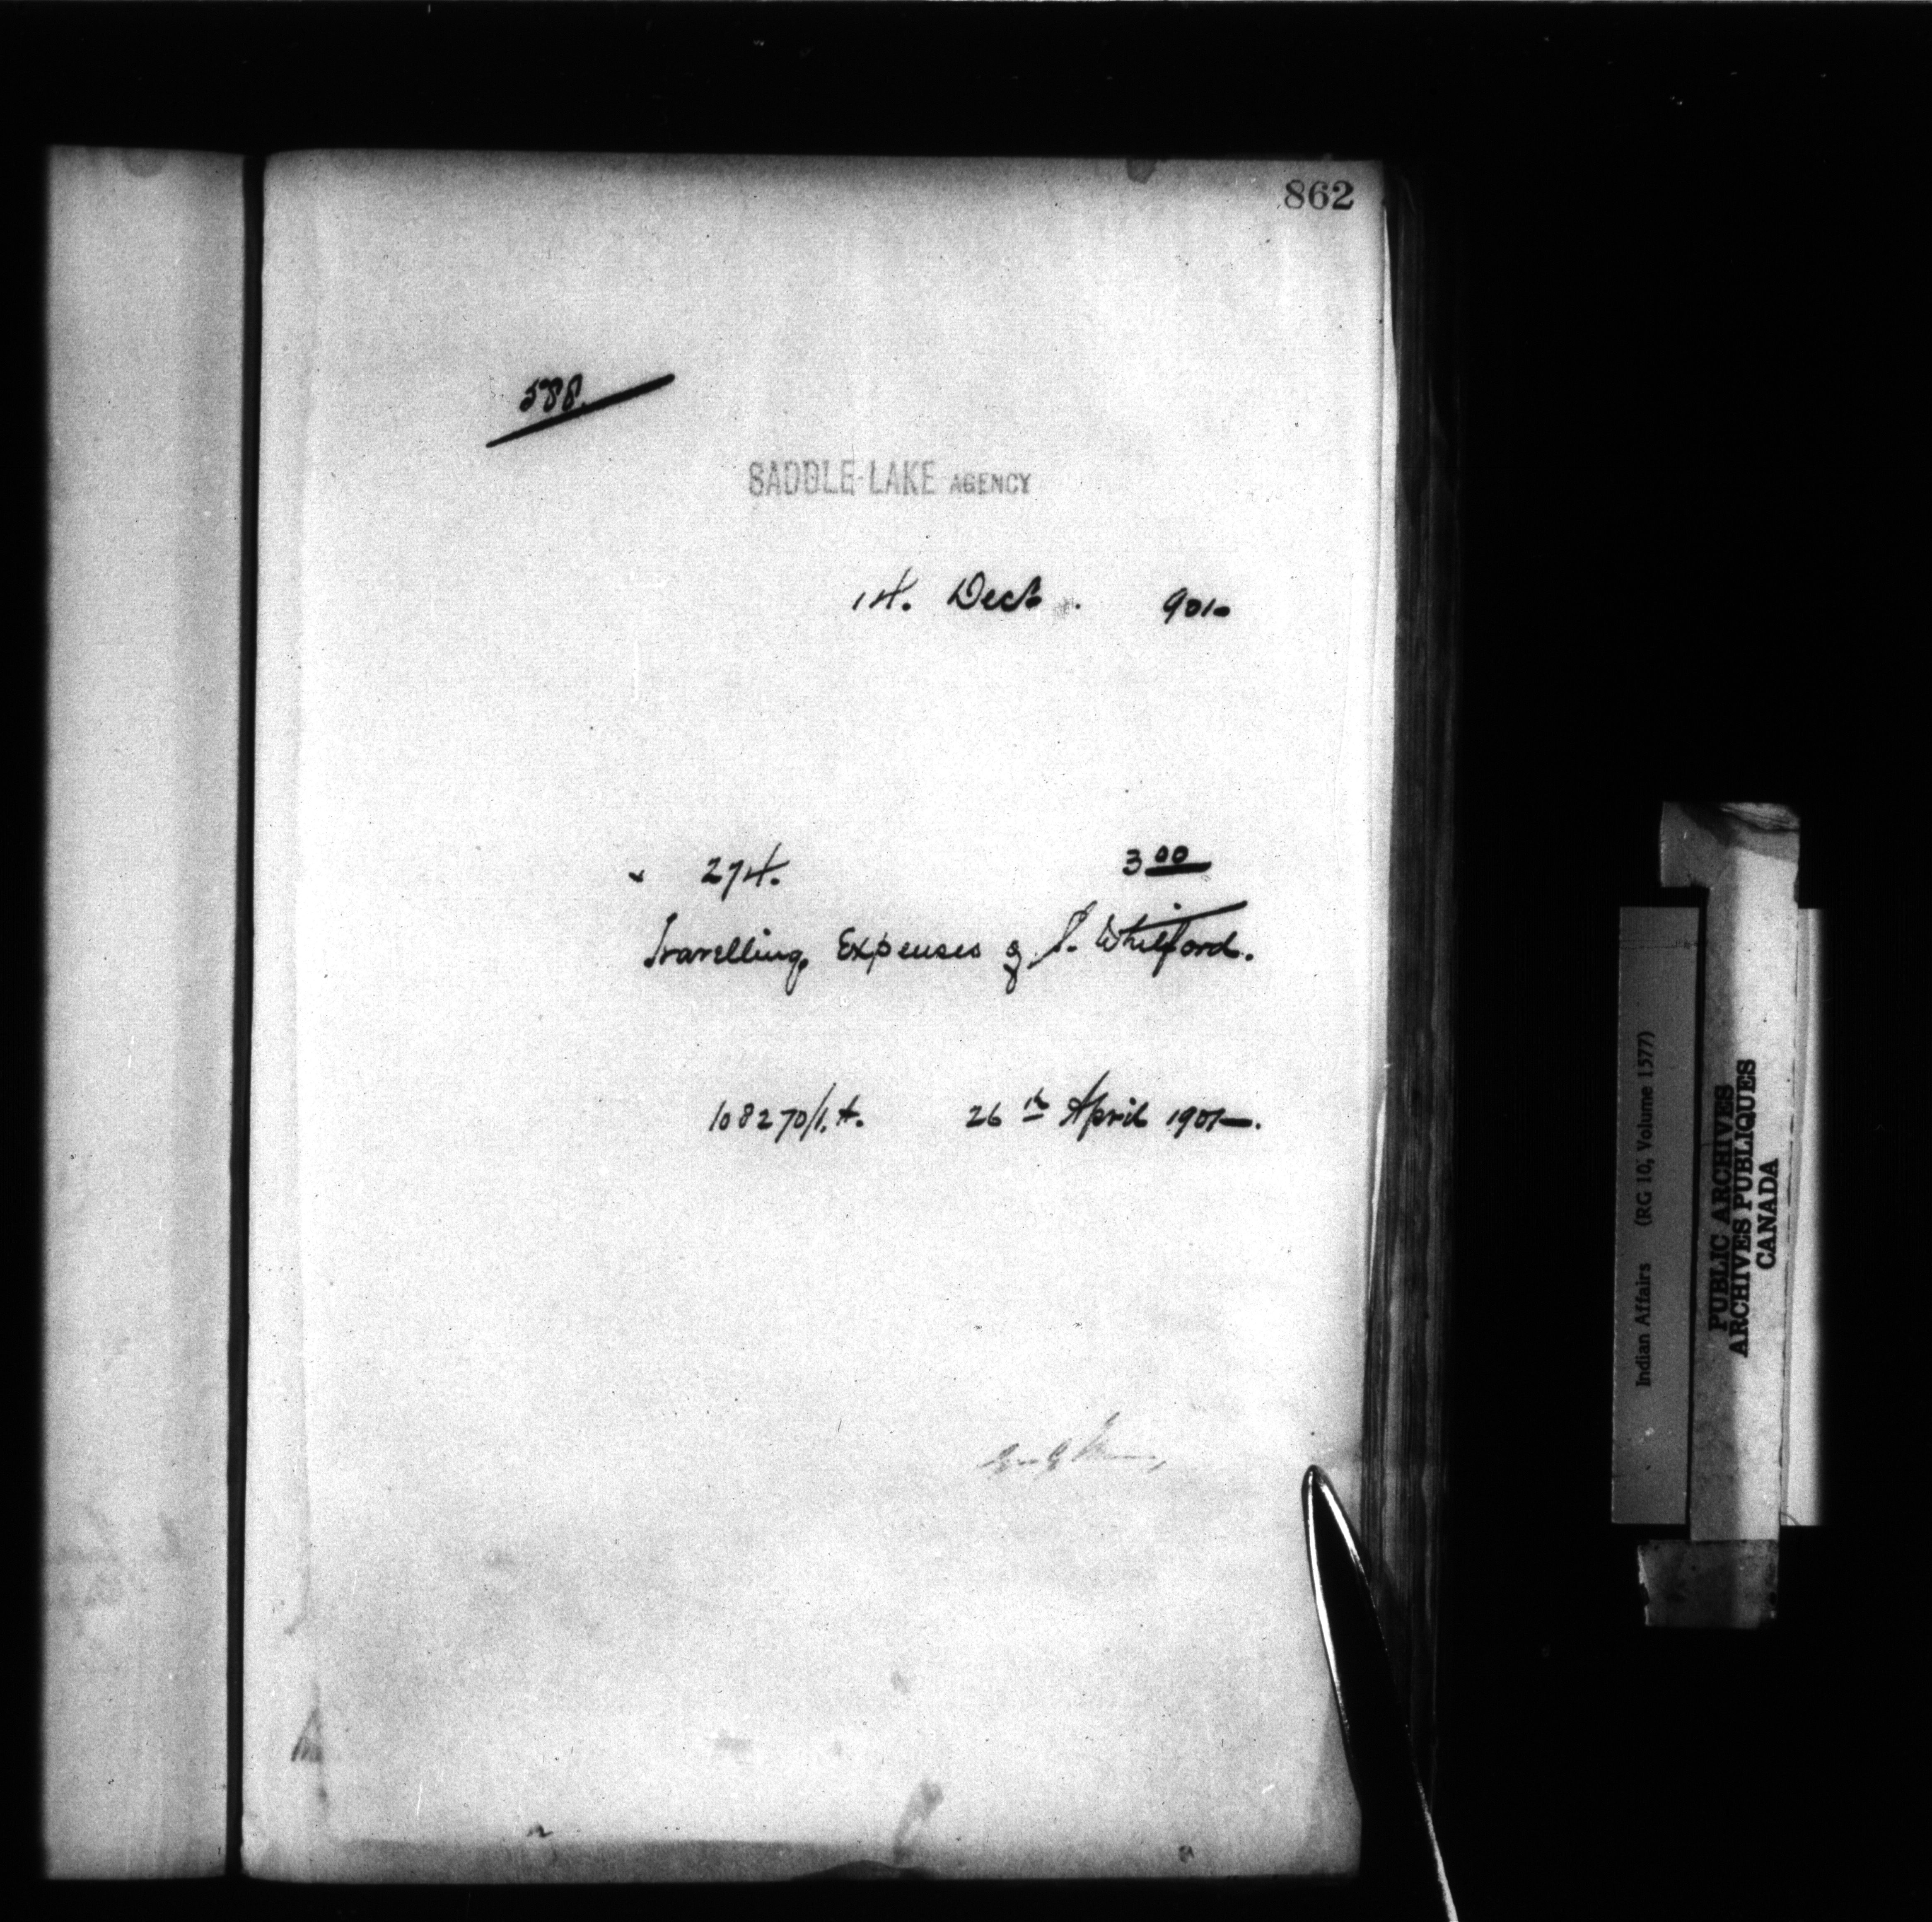 862
588.
SADDLE-LAKE AGENCY
14. Dec. 901-
274. 3 00
Travelling Expenses of J. Whitford.
108270/1.A. 26th April 1901-.
Indian Affairs (RG 10, Volume 1577)
PUBLIC ARCHIVES
ARCHIVES PUBLIQUES
CANADA